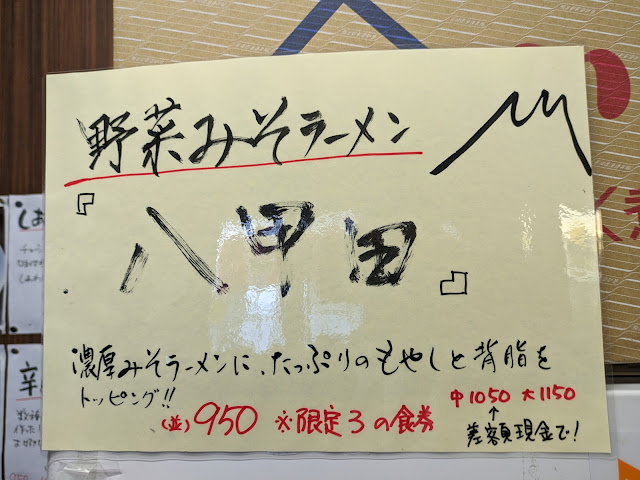 野菜みそラーメン
『八甲田』
濃厚みそラーメンに、たっぷりのもやしと背脂を
トッピング!!
(並)950 ※限定3の食券
中1050 大1150
↑
差額現金で!
しお
辛